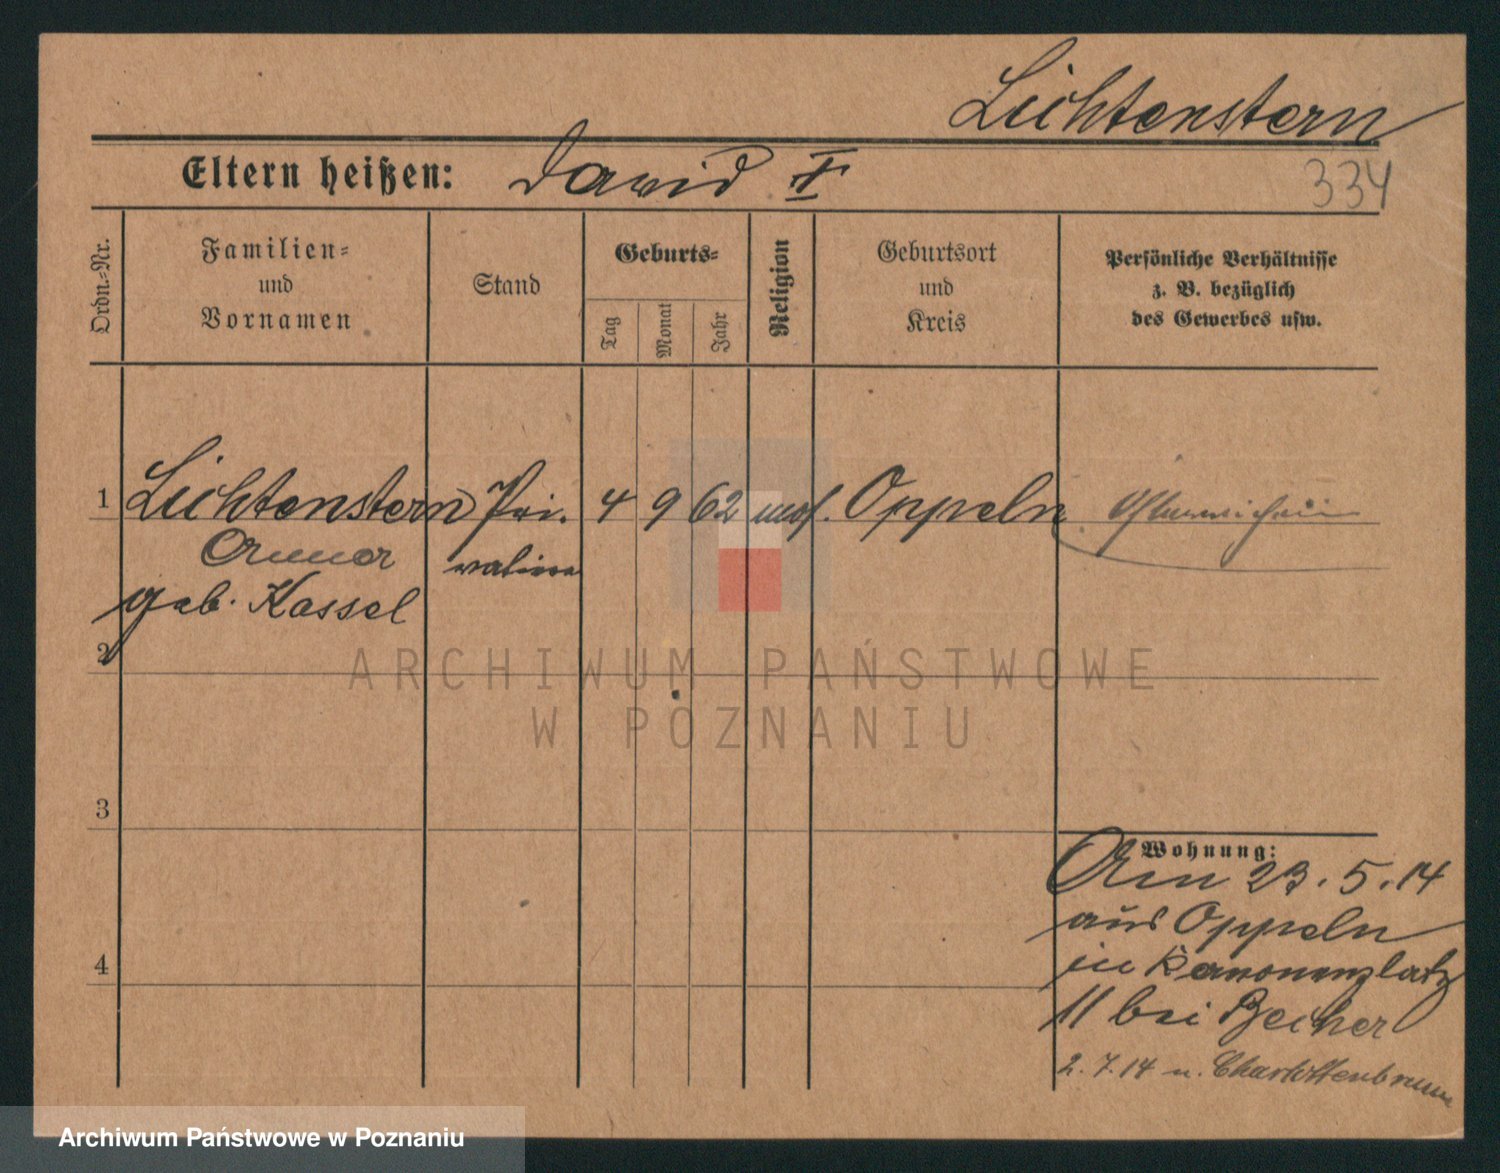 Lichtenstern
Eltern heißen: David †
334
Ordn.=Nr.
Familien=
und
Vornamen
Stand
Geburts=
Tag
Monat
Jahr
Religion
Geburtsort
und
Kreis
Persönliche Verhältnisse
z. B. bezüglich
des Gewerbes usw.
1 Lichtenstern Pri. 4 9 62 mos. Oppeln
vatiere
geb. Kassel
2
ARCHIWUM PAŃSTWOWE
W POZNANIU
3
Wohnung:
Am 23.5.14
aus Oppeln
in Kanonenplatz
11 bei Becher
4
2.7.14 n. Charlottenbrunn
Archiwum Państwowe w Poznaniu